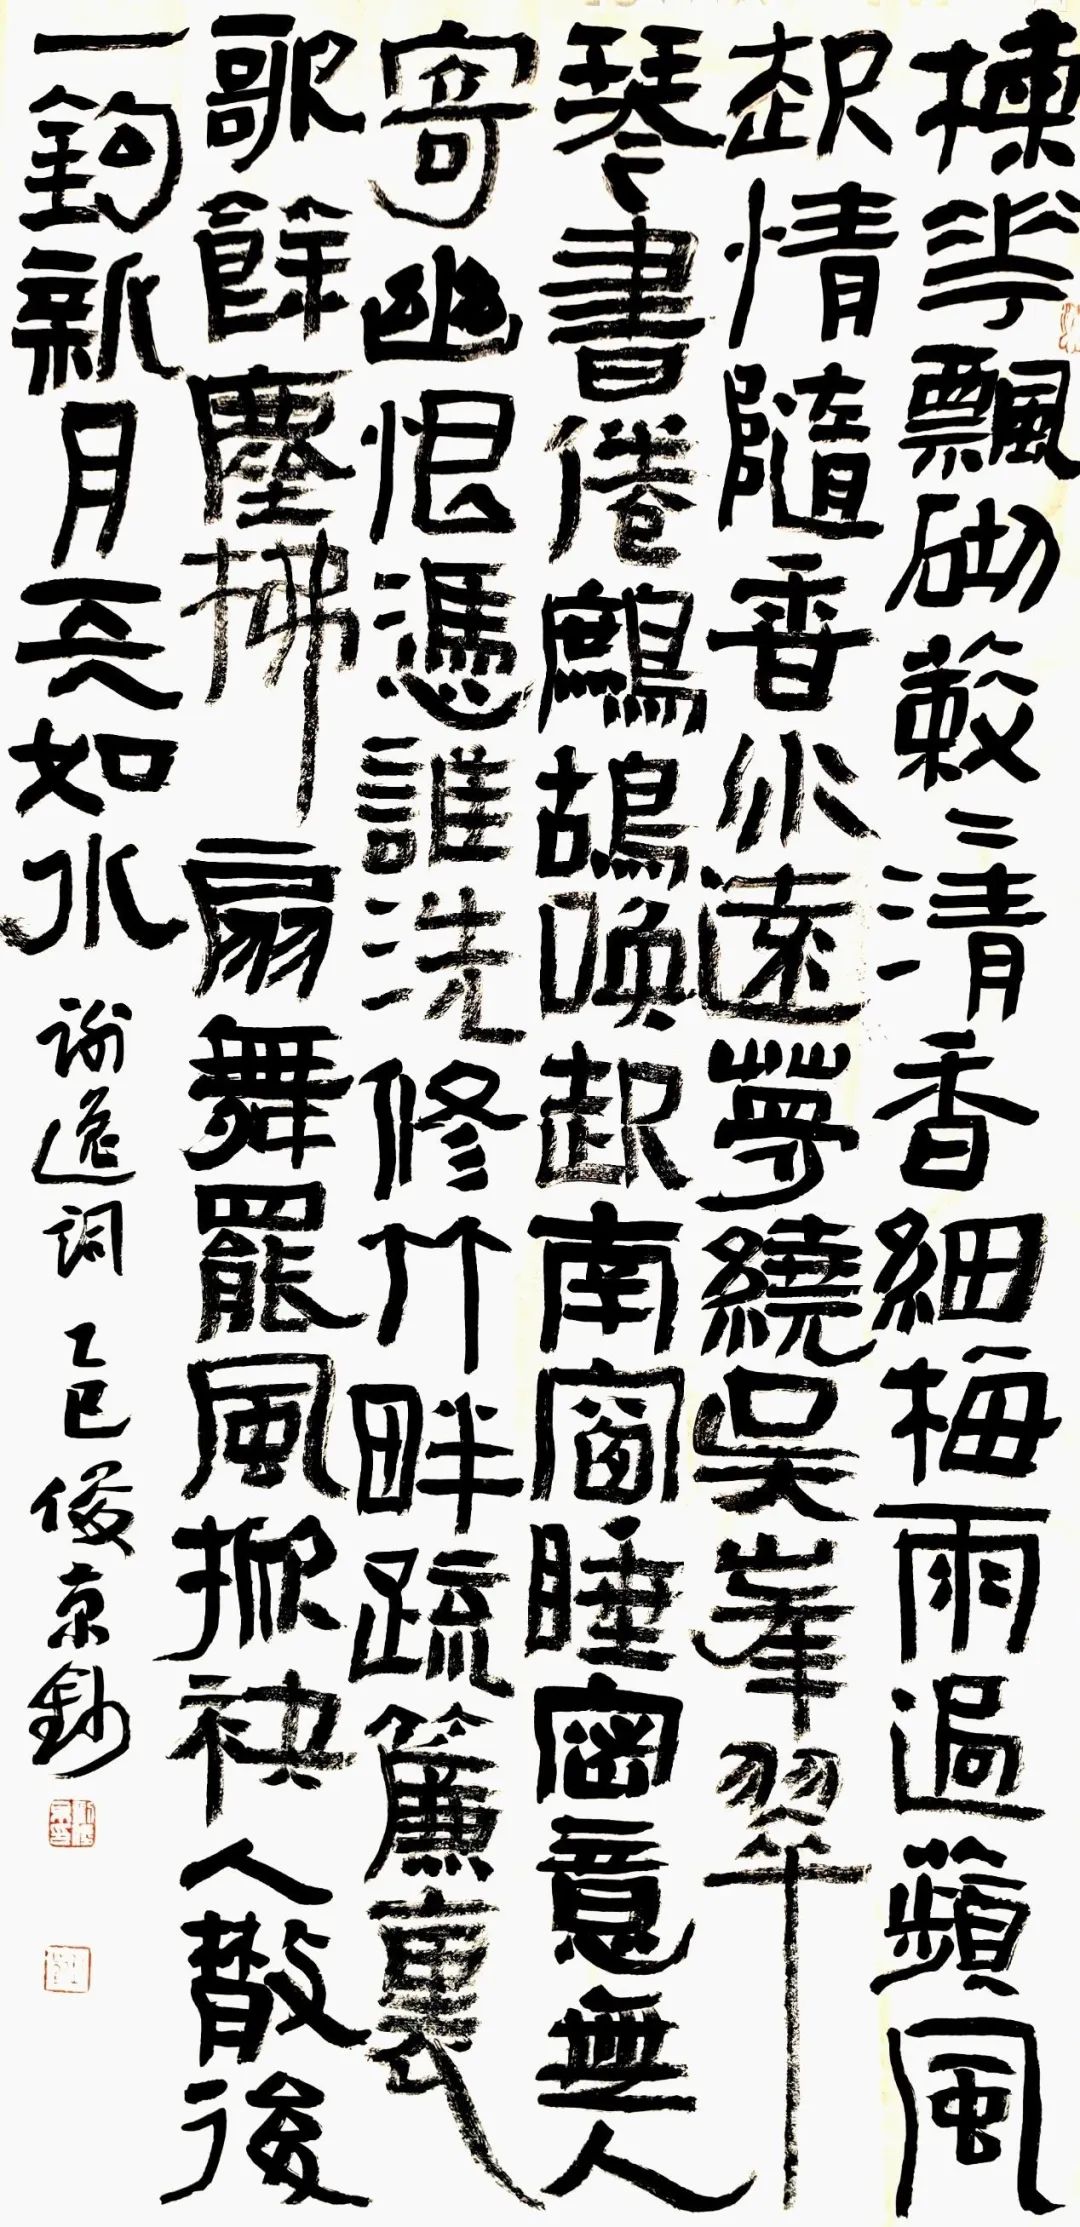 楝花飄砌蔌〻清香細梅雨過蘋風
起情隨香水遠夢繞吳峯翠
琴書倦鷓鴣喚起南窗睡密意無人
寄幽恨憑誰洗修竹畔疏簾裏
歌餘塵拂扇舞罷風掀袂人散後
一鉤新月天如水
謝逸詞 乙巳 俊京鈔